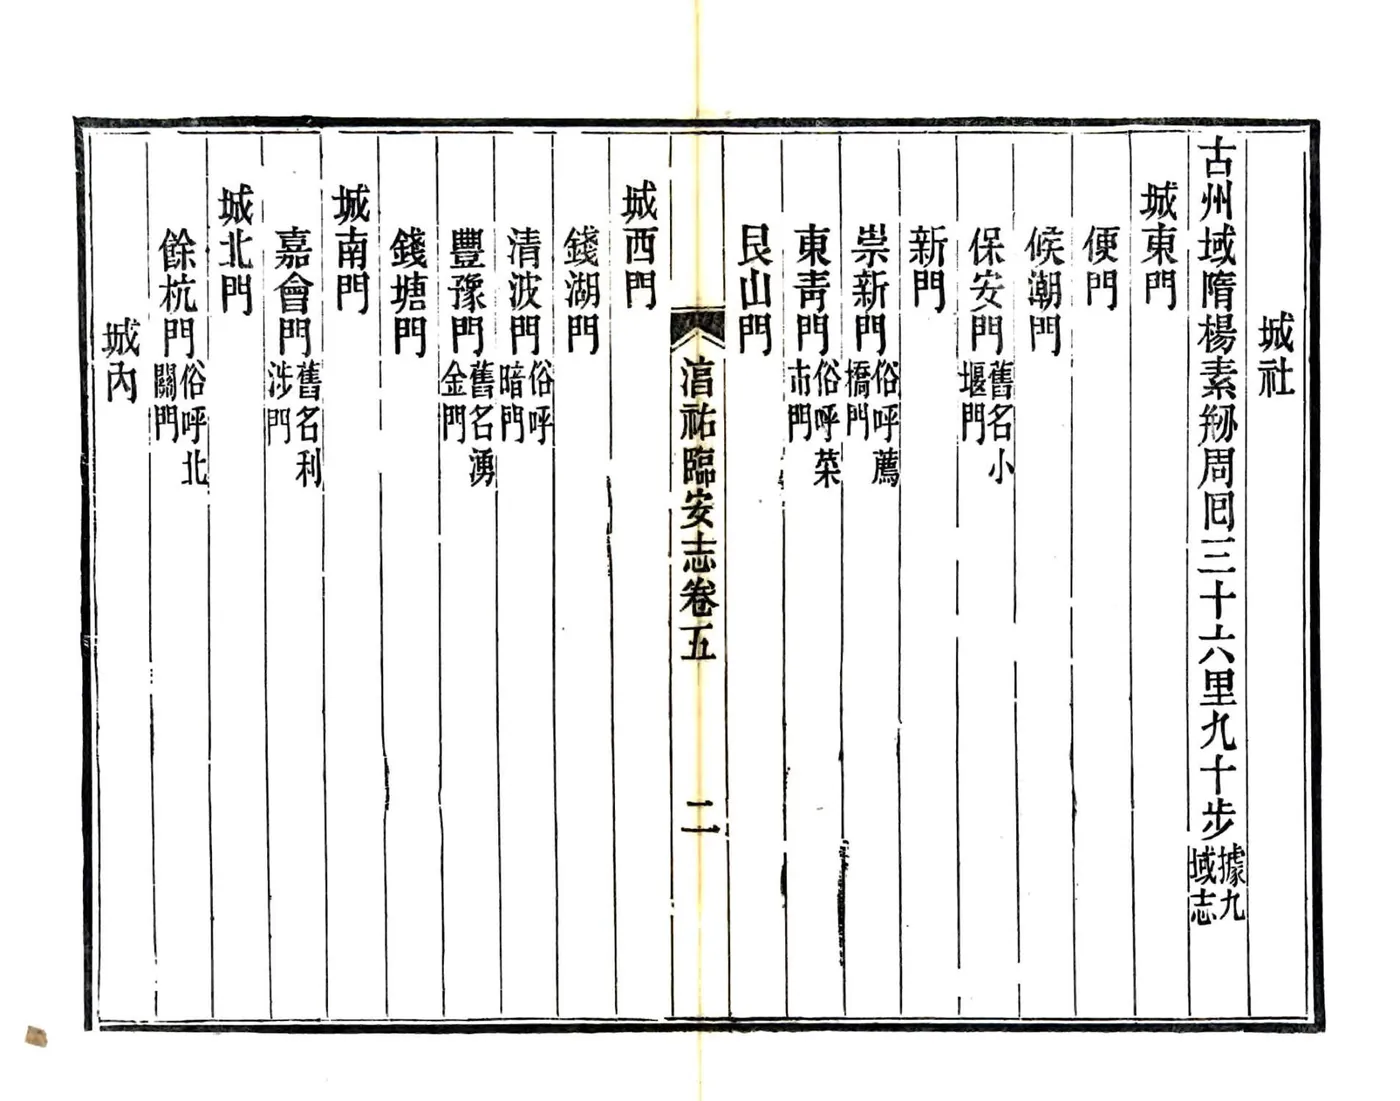 城社
古州城隋楊素刱周囘三十六里九十步據九域志
城東門
便門
候潮門
保安門舊名小堰門
新門
崇新門俗呼薦橋門
東靑門俗呼菜市門
艮山門
淳祐臨安志卷五
二
城西門
錢湖門
清波門俗呼暗門
豐豫門舊名湧金門
錢塘門
城南門
嘉會門舊名利涉門
城北門
餘杭門俗呼北關門
城內